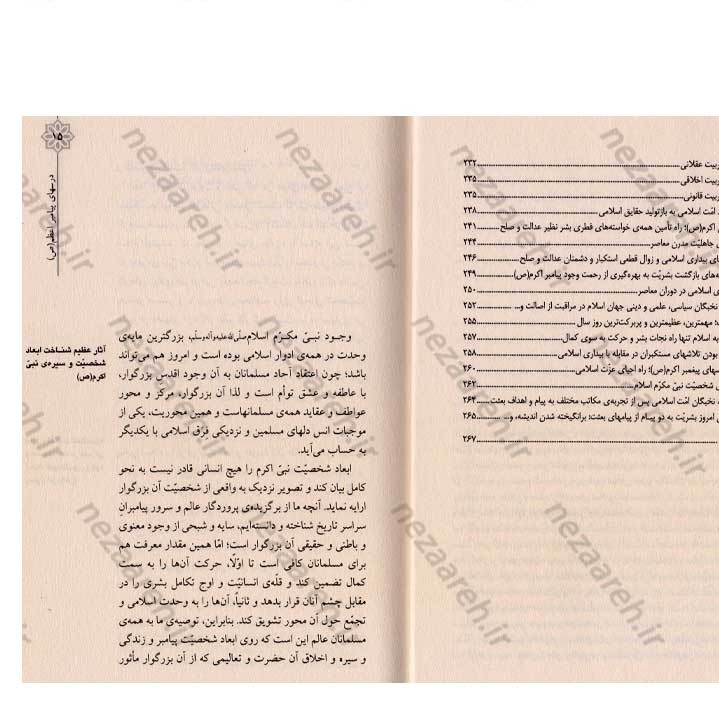 ربیت عقلانی ۲۳۲
ربیت اخلاقی ۲۳۵
ربیت قانونی ۲۳۵
امّت اسلامی به بازتولید حقایق اسلامی ۲۳۸
اکرم(ص)؛ راه تأمین همه‌ی خواسته‌های فطری بشر نظیر عدالت و صلح ۲۴۱
جاهلیّت مدرن معاصر ۲۴۴
ای بیداری اسلامی و زوال قطعی استکبار و دشمنان عدالت و صلح ۲۴۶
ه‌های بازگشت بشریّت به بهره‌گیری از رحمت وجود پیامبر اکرم(ص) ۲۴۹
ی اسلامی در دوران معاصر ۲۵۰
نخبگان سیاسی، علمی و دینی جهان اسلام در مراقبت از اصالت و... ۲۵۲
؛ مهمترین، عظیمترین و پربرکت‌ترین روز سال ۲۵۵
به اسلام تنها راه نجات بشر و حرکت به سوی کمال ۲۵۷
بودن تلاشهای مستکبران در مقابله با بیداری اسلامی ۲۵۸
سهای پیغمبر اکرم(ص)؛ راه احیای عزّت اسلامی ۲۶۰
شخصیّت نبیّ مکرّم اسلام ۲۶۲
نخبگان امّت اسلامی پس از تجربه‌ی مکاتب مختلف به پیام و اهداف بعثت ۲۶۴
امروز بشریّت به دو پیام از پیامهای بعثت؛ برانگیخته شدن اندیشه، و... ۲۶۵
۲۶۷
۱۵
درسهای پیامبر اعظم(ص)
آثار عظیم شناخت ابعاد
شخصیّت و سیره‌ی نبیّ
اکرم(ص)
وجود نبیّ مکرّم اسلام صلّی‌الله‌علیه‌وآله‌وسلّم، بزرگترین مایه‌ی
وحدت در همه‌ی ادوار اسلامی بوده است و امروز هم می‌تواند
باشد؛ چون اعتقاد آحاد مسلمانان به آن وجود اقدس بزرگوار،
با عاطفه و عشق توأم است و لذا آن بزرگوار، مرکز و محور
عواطف و عقاید همه‌ی مسلمانهاست و همین محوریت، یکی از
موجبات انس دلهای مسلمین و نزدیکی فرَق اسلامی با یکدیگر
به حساب می‌آید.
ابعاد شخصیّت نبیّ اکرم را هیچ انسانی قادر نیست به نحو
کامل بیان کند و تصویر نزدیک به واقعی از شخصیّت آن بزرگوار
ارایه نماید. آنچه ما از برگزیده‌ی پروردگار عالم و سرور پیامبرانِ
سراسر تاریخ شناخته و دانسته‌ایم، سایه و شبحی از وجود معنوی
و باطنی و حقیقی آن بزرگوار است؛ امّا همین مقدار معرفت هم
برای مسلمانان کافی است تا اوّلاً، حرکت آن‌ها را به سمت
کمال تضمین کند و قلّه‌ی انسانیّت و اوج تکامل بشری را در
مقابل چشم آنان قرار بدهد و ثانیاً، آن‌ها را به وحدت اسلامی و
تجمّع حول آن محور تشویق کند. بنابراین، توصیه‌ی ما به همه‌ی
مسلمانان عالم این است که روی ابعاد شخصیّت پیامبر و زندگی
و سیره و اخلاق آن حضرت و تعالیمی که از آن بزرگوار مأثور
nezaareh.ir
nezaareh.ir
nezaareh.ir
nezaareh.ir
nezaareh.ir
nezaareh.ir
nezaareh.ir